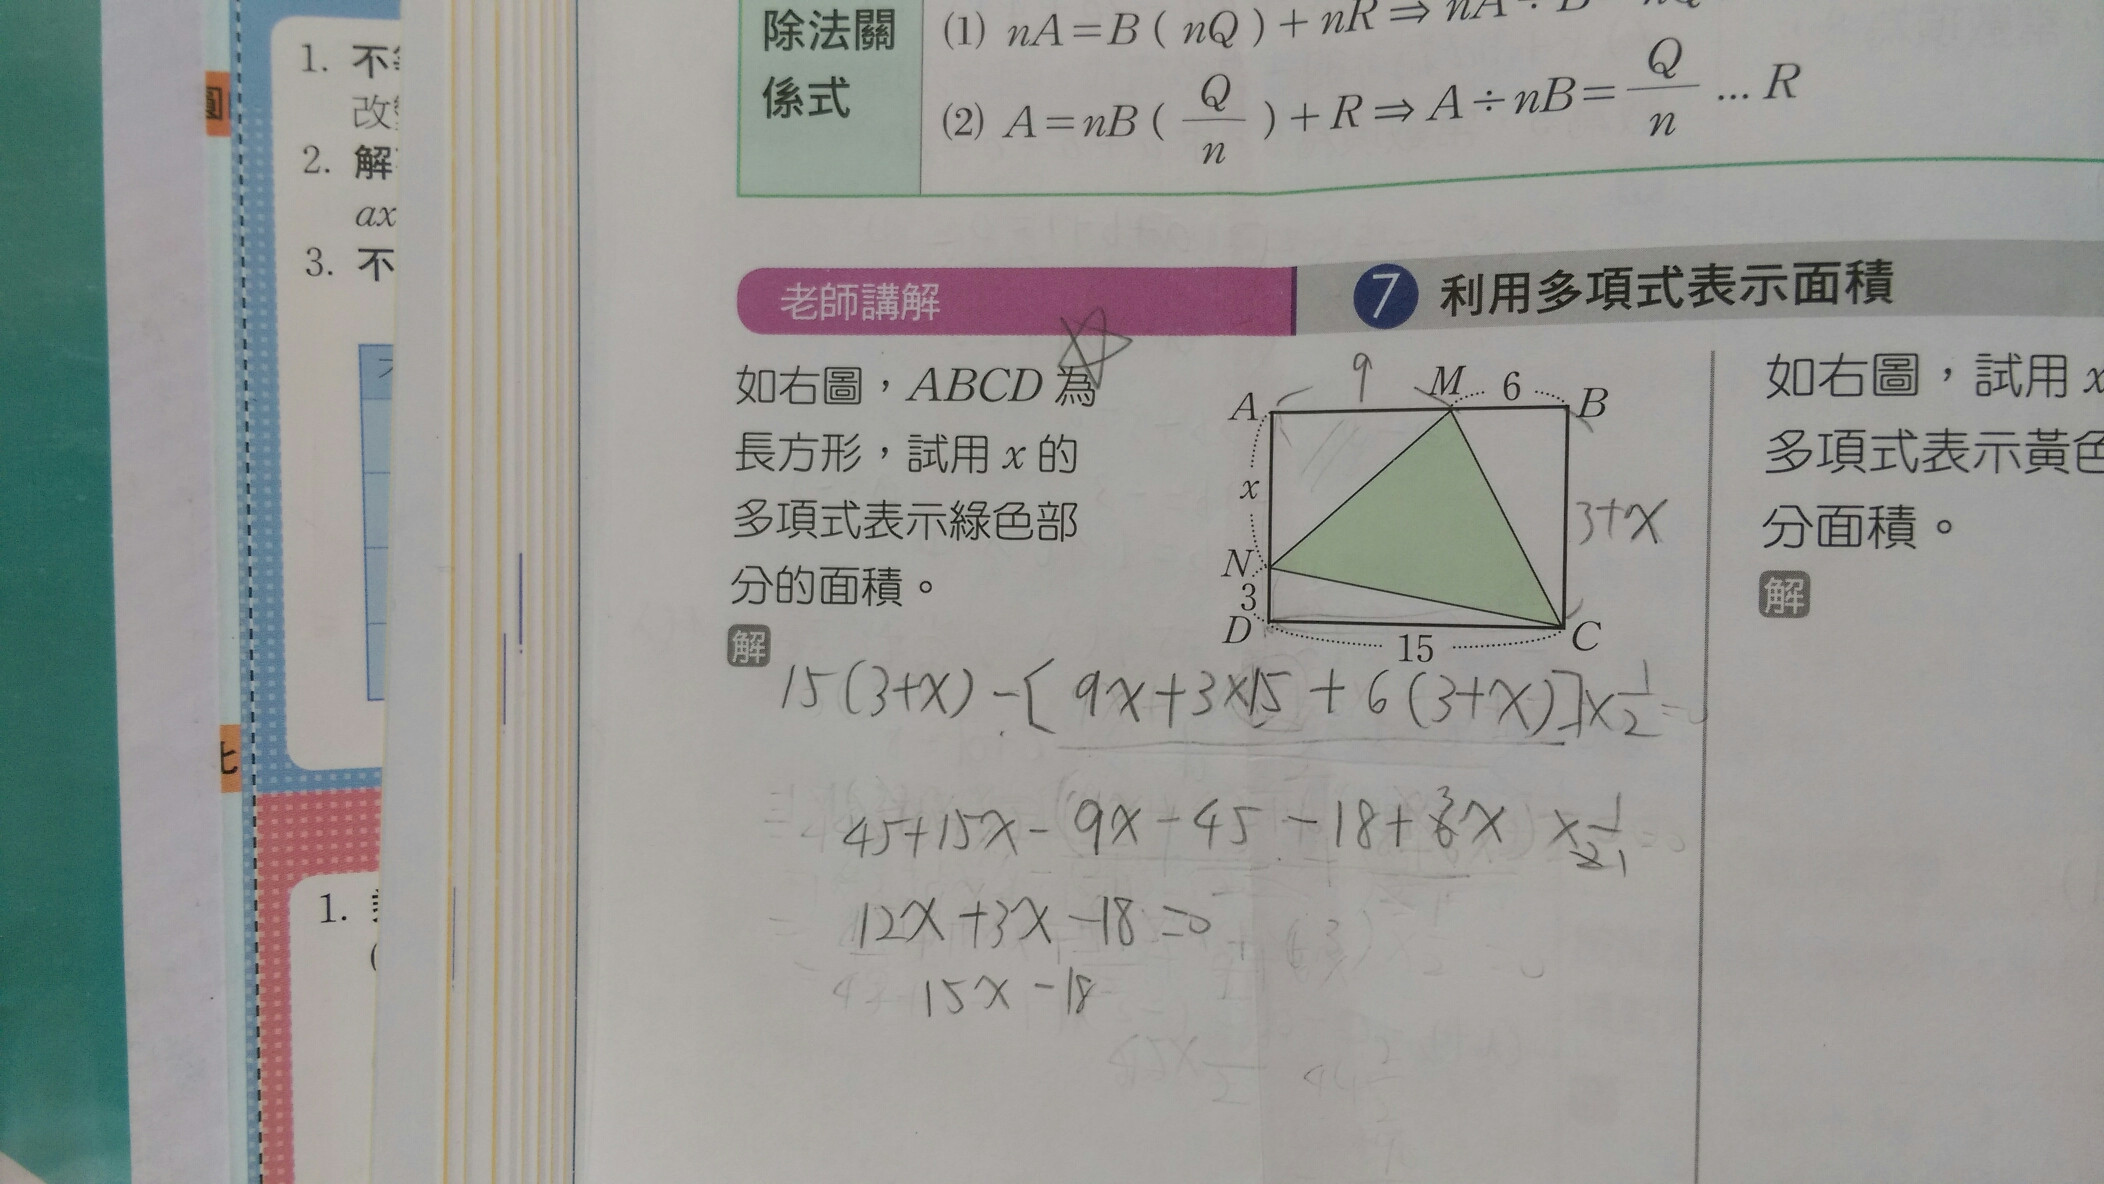 1. 不
改
2. 解
ax
3. 不
圓
1.
除法關
係式
(1) nA=B ( nQ )+nR⇒ nA÷B nQ
(2) A=nB ( Q/n )+R⇒ A÷nB= Q/n ... R
老師講解
7 利用多項式表示面積
如右圖，ABCD 為
長方形，試用 x 的
多項式表示綠色部
分的面積。
解
9
A M 6 B
x
3+x
N
3
D 15 C
15(3+x) -[ 9x+3×15 + 6(3+x)]×1/2 =
45+15x- 9x-45 -18+6x 3 ×1/2 1
12x+3x-18=0
15x-18
如右圖，試用 x
多項式表示黃色
分面積。
解